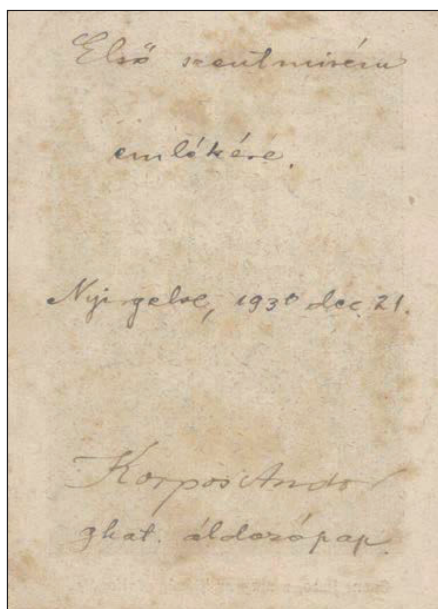 Első szentmisém
emlékére.
Nyírgelse, 1930 dec. 21.
Korpos Andor
gkat. áldozópap.